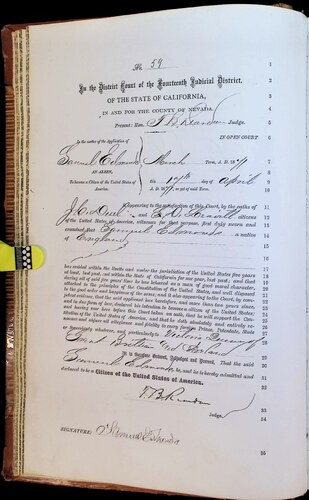 No 59
In the District Court of the Fourteenth Judicial District,
OF THE STATE OF CALIFORNIA,
IN AND FOR THE COUNTY OF NEVADA.
Present: Hon. T. B. Reardon Judge.
In the matter of the Application of
IN OPEN COURT
Samuel Edmonds
March Term, A. D. 187
AN ALIEN,
To become a Citizen of the United States of America.
this 17th day of April
A. D. 187 , as yet of said Term.
It appearing to the satisfaction of this Court, by the oaths of
citizens
of the United States of America, witnesses for that purpose, first duly sworn and
examined that Samuel Edmonds a native
of England
has resided within the limits and under the jurisdiction of the United States five years
at least, last past, and within the State of California for one year, last past; and that
during all of said five years' time he has behaved as a man of good moral character,
attached to the principles of the Constitution of the United States, and well disposed
to the good order and happiness of the same; and it also appearing to the Court, by competent
proof evidence, that the said applicant has heretofore, and more than two years since,
and in due form of law, declared his intention to become a citizen of the United States,
and having now here before this Court taken an oath, that he will support the Constitution
of the United States of America, and that he doth absolutely and entirely renounce
and abjure all allegiance and fidelity to every foreign Prince, Potentate, State
or Sovereignty whatever, and particularly to Victoria Queen of
Great Britain and Ireland
It is therefore Ordered, Adjudged and Decreed, That the said
Samuel Edmonds be, and he is hereby admitted and
declared to be a Citizen of the United States of America.
T. B. Reardon
Judge.
SIGNATURE: Samuel Edmonds
1
2
3
4
5
6
7
8
9
10